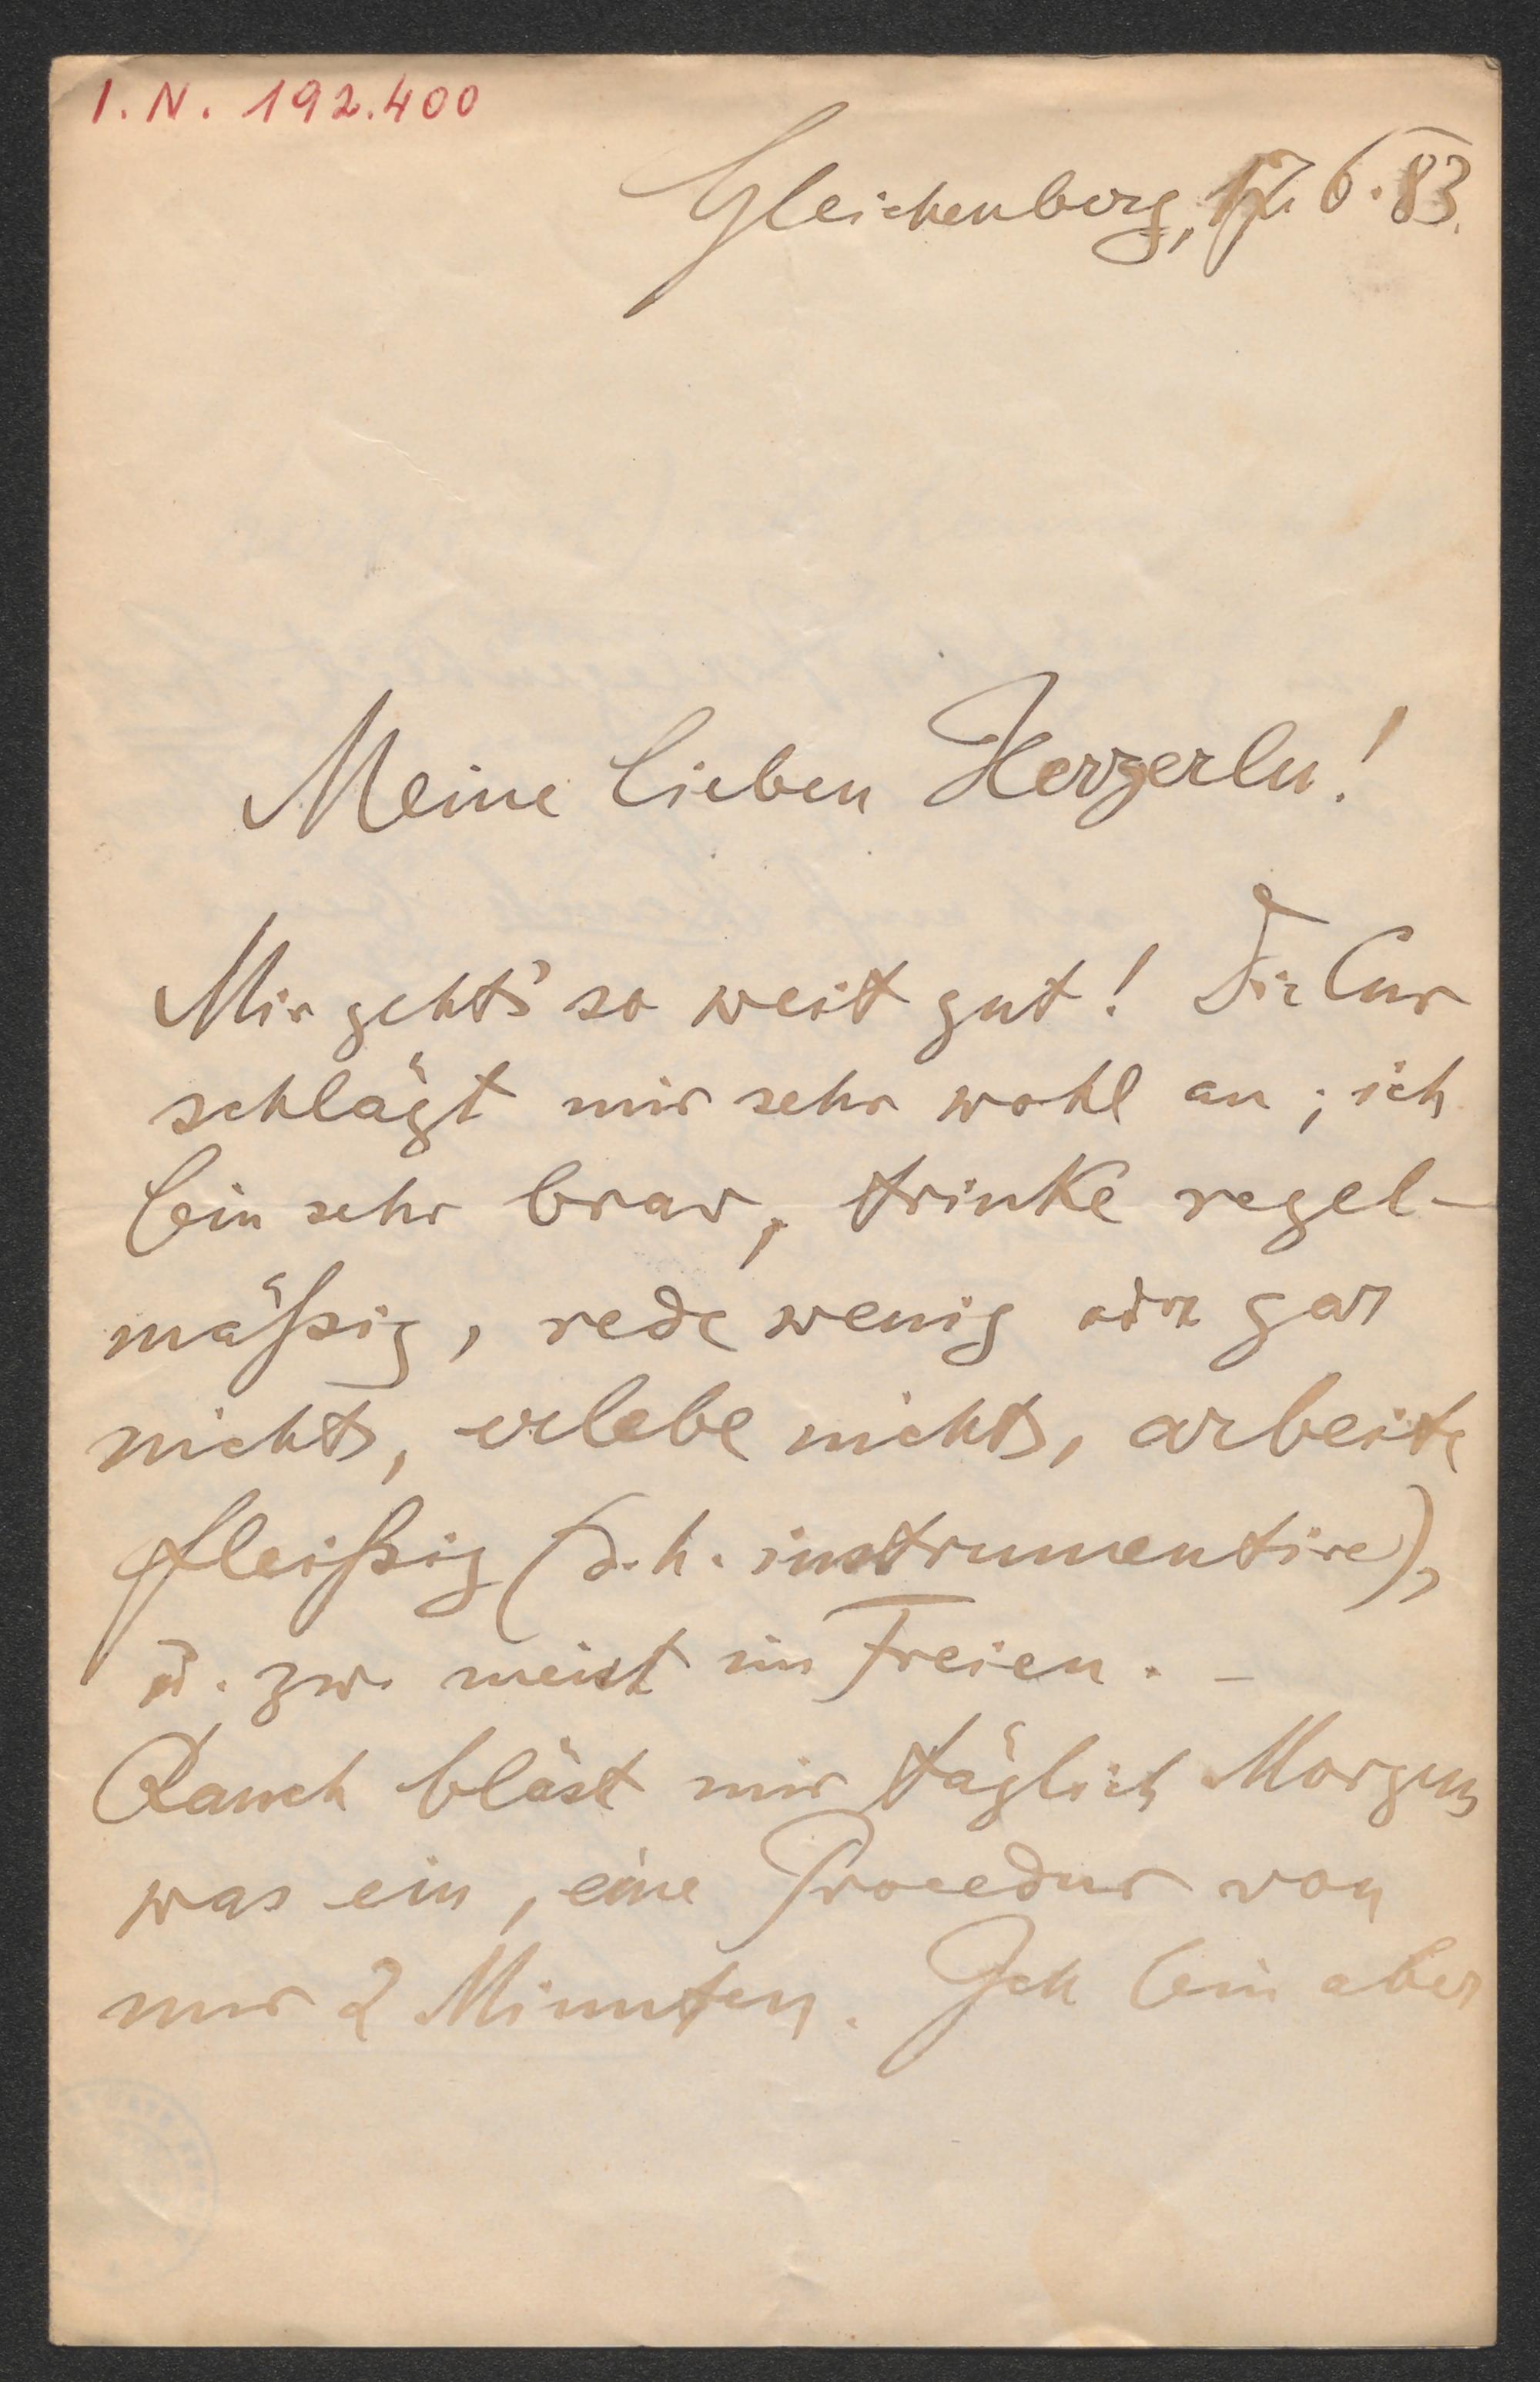 I.N. 192.400
Gleichenberg, 17. 6. 83.
Meine lieben Herzerln!
Mir geht's so weit gut! Die Cur
schlägt mir sehr wohl an; ich
bin sehr brav, trinke regel-
mäßig, rede wenig oder gar
nichts, erlebe nichts, arbeite
fleißig (d. h. instrumentire),
u. zw. meist im Freien. –
Rauch bläst mir täglich Morgens
was ein, eine Procedur von
nur 2 Minuten. Ich bin aber